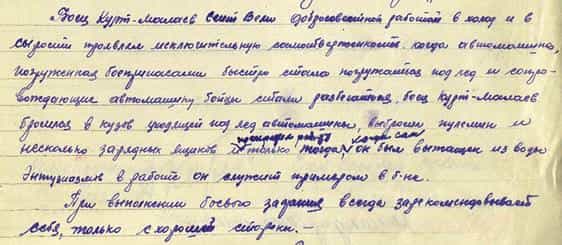 Боец Курт-Малаев Сеит Вели добросовестной работой в холод и в
сырость проявлял исключительную самоотверженность. когда автомашина,
погруженная боеприпасами быстро стала погружатся под лед и сопро-
вождающие автомашину бойцы стали разбегаться, боец Курт-Малаев
бросился в кузов уходящей под лед автомашины, выбросил пулемет и
несколько зарядных ящиков и только тогда, когда сам
он был вытащен из воды
Энтузиазмом в работе он служит примером в б-не.
При выполнении боевого задания всегда зарекомендовывает
себя, только с хорошей стороны. —